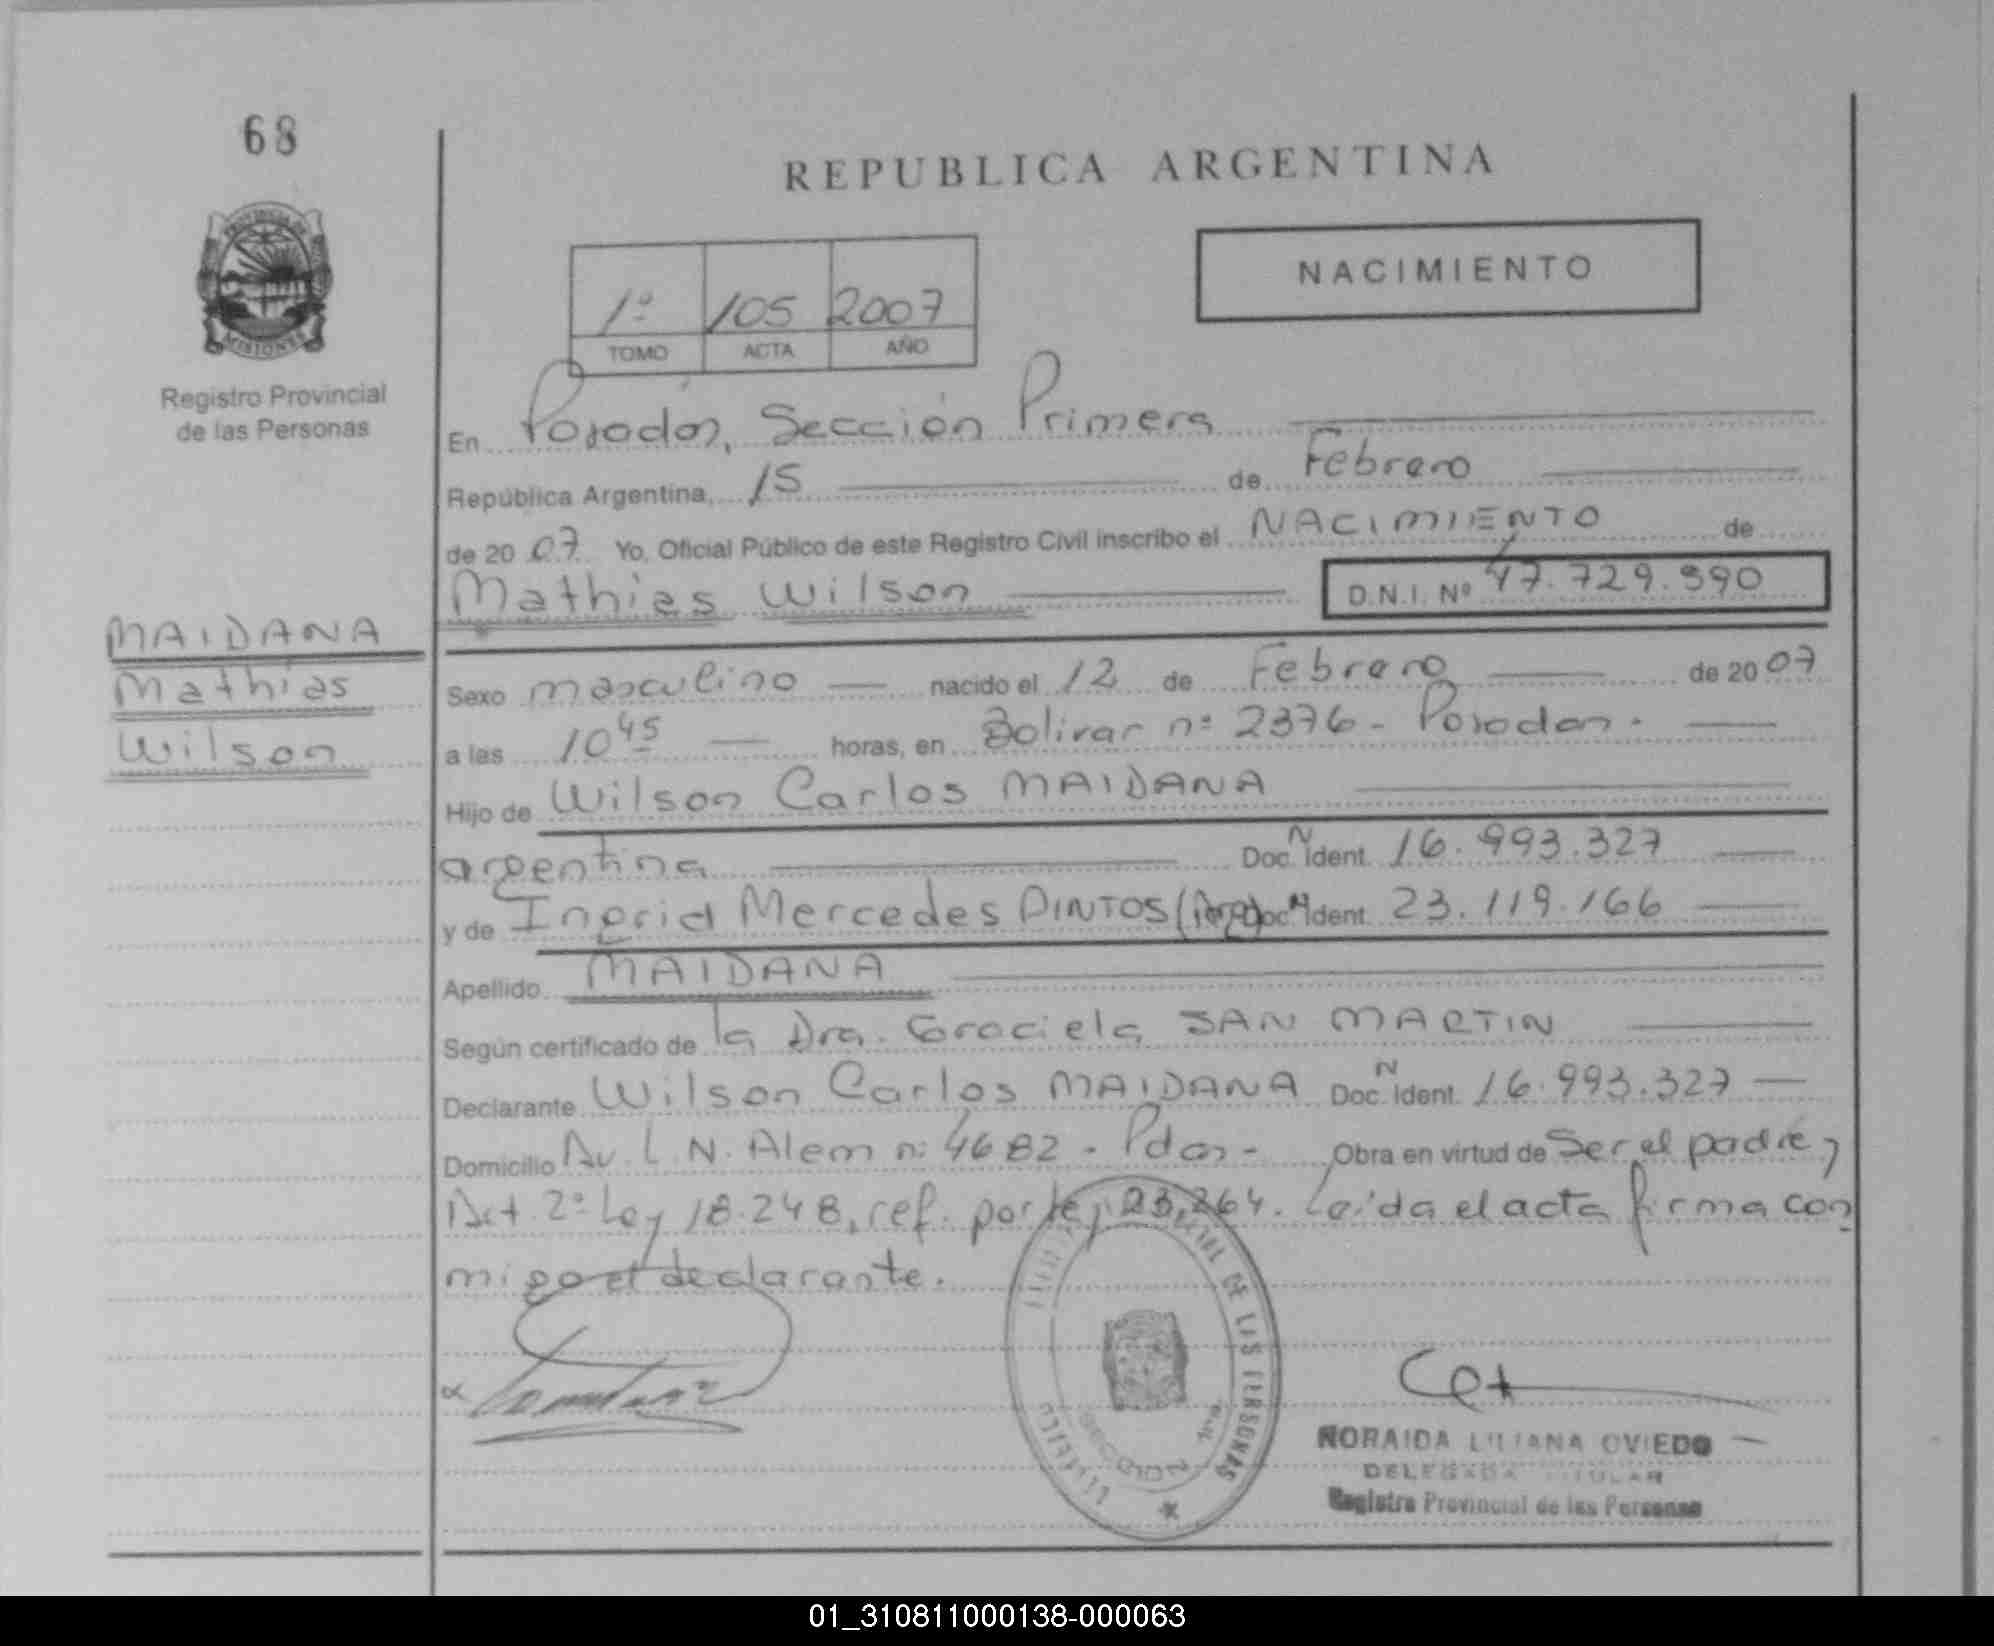 68
REPUBLICA ARGENTINA
PROVINCIA DE
MISIONES
Registro Provincial
de las Personas
NACIMIENTO
1º 105 2007
TOMO ACTA AÑO
En Posadas, Sección Primera
República Argentina, 15 de Febrero
de 2007 Yo, Oficial Público de este Registro Civil inscribo el NACIMIENTO de
Mathias Wilson D.N.I. Nº 47.729.590
MAIDANA
Mathias
Wilson
Sexo masculino nacido el 12 de Febrero de 2007
a las 10 45 horas, en Bolivar nº 2376 - Posadas.
Hijo de Wilson Carlos MAIDANA
argentina Doc. N Ident. 16.993.327
y de Ingrid Mercedes PINTOS (Arg) Doc. N Ident. 23.119.166
Apellido MAIDANA
Según certificado de la Dra. Graciela SAN MARTIN
Declarante Wilson Carlos MAIDANA Doc. N Ident. 16.993.327
Domicilio Av. L. N. Alem nº 4682 - Pdas - Obra en virtud de Ser el padre,
Art. 2º Ley 18.248, ref. por ley 23.264. Leída el acta firma con
migo el declarante.
DE LAS PERSONAS
NORAIDA LILIANA OVIEDO
DELEGADA TITULAR
Registro Provincial de las Personas
01_310811000138-000063